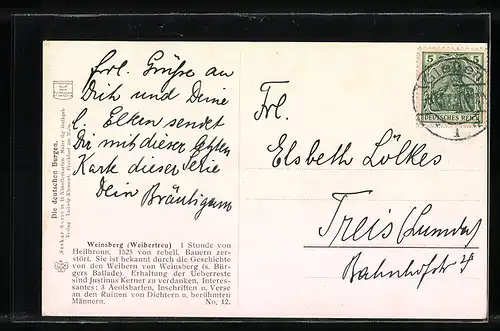 Die deutschen Burgen.
frl. Grüße an
Dich und Deine
l. Eltern sendet
Dir mit dieser letzten
Karte dieser Serie
Dein Bräutigam
Weinsberg (Weibertreu) 1 Stunde von
Heilbronn, 1525 von rebell. Bauern zer-
stört. Sie ist bekannt durch die Geschichte
von den Weibern von Weinsberg (s. Bür-
gers Ballade). Erhaltung der Ueberreste
sind Justinus Kerner zu verdanken, Interes-
santes: 3 Aeolsharfen, Inschriften u. Verse
an den Ruinen von Dichtern u. berühmten
Männern. No. 12.
5 5
DEUTSCHES REICH
Frl.
Elsbeth Lölkes
Treis (Lumda)
Bahnhofstr